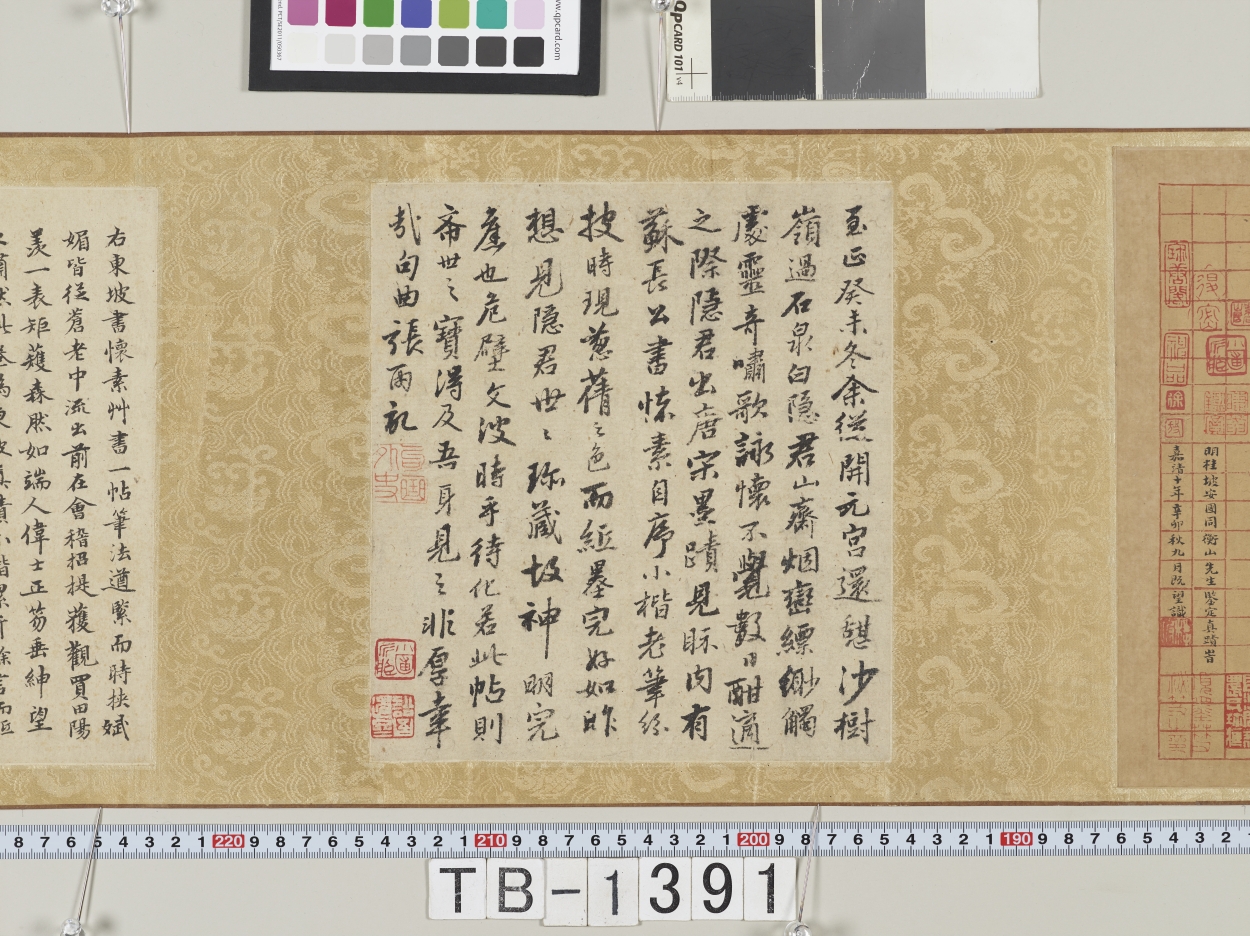 www.qpcard.com
QPCARD 101 v4
明桂坡安國同衡山先生鑒定真蹟皆
嘉靖十年辛卯秋九月既望識
至正癸未冬余從開元宮還憇沙樹
嶺過石泉白隱君山齋烟巒縹緲觸
處靈奇嘯歌詠懷不覺數日酣適
之際隱君出唐宋墨蹟見眎內有
蘇長公書懷素自序小楷老筆紛
披時現蒼蒨之色而紙墨完好如昨
想見隱君世〻珍藏故神明完
產也危壁文波時乎待化若此帖則
齋世之寶得及吾身見之非厚幸
哉句曲張雨記
右東坡書懷素艸書一帖筆法遒緊而時挾斌
媚皆從蒼老中流出前在會稽招提獲觀買田陽
羨一表矩矱森然如端人偉士正笏垂紳望
8 7 6 5 4 3 2 1 220 9 8 7 6 5 4 3 2 1 210 9 8 7 6 5 4 3 2 1 200 9 8 7 6 5 4 3 2 1 190 9 8 7 6 5 4 3 2
TB-1391